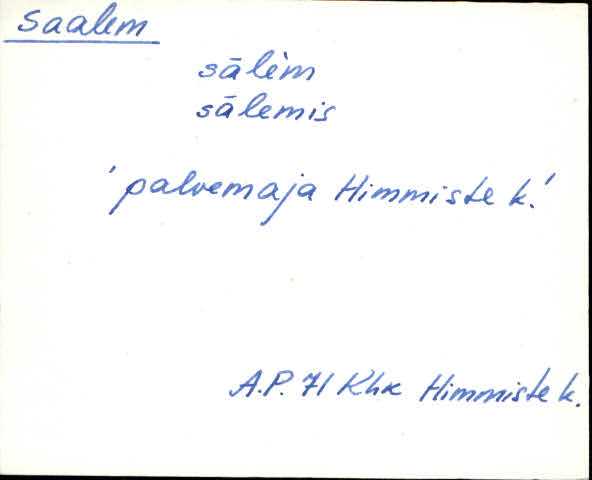 Saalem
sālèm
sālemis
'palvemaja Himmiste k.'
A.P. 71 Khk Himmiste k.